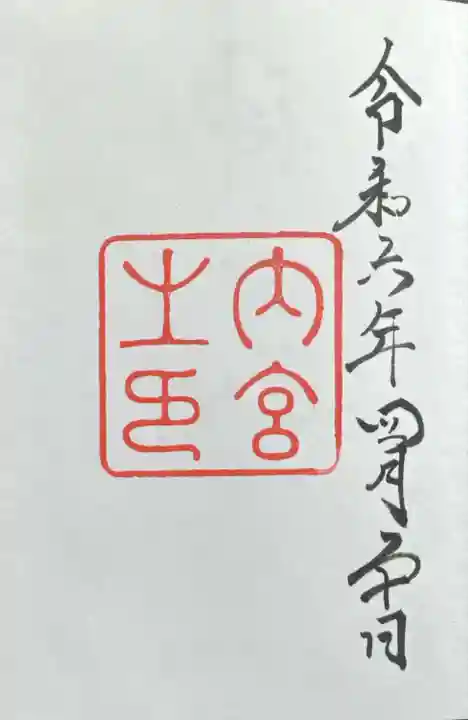 令和六年四月日
内宮
之印